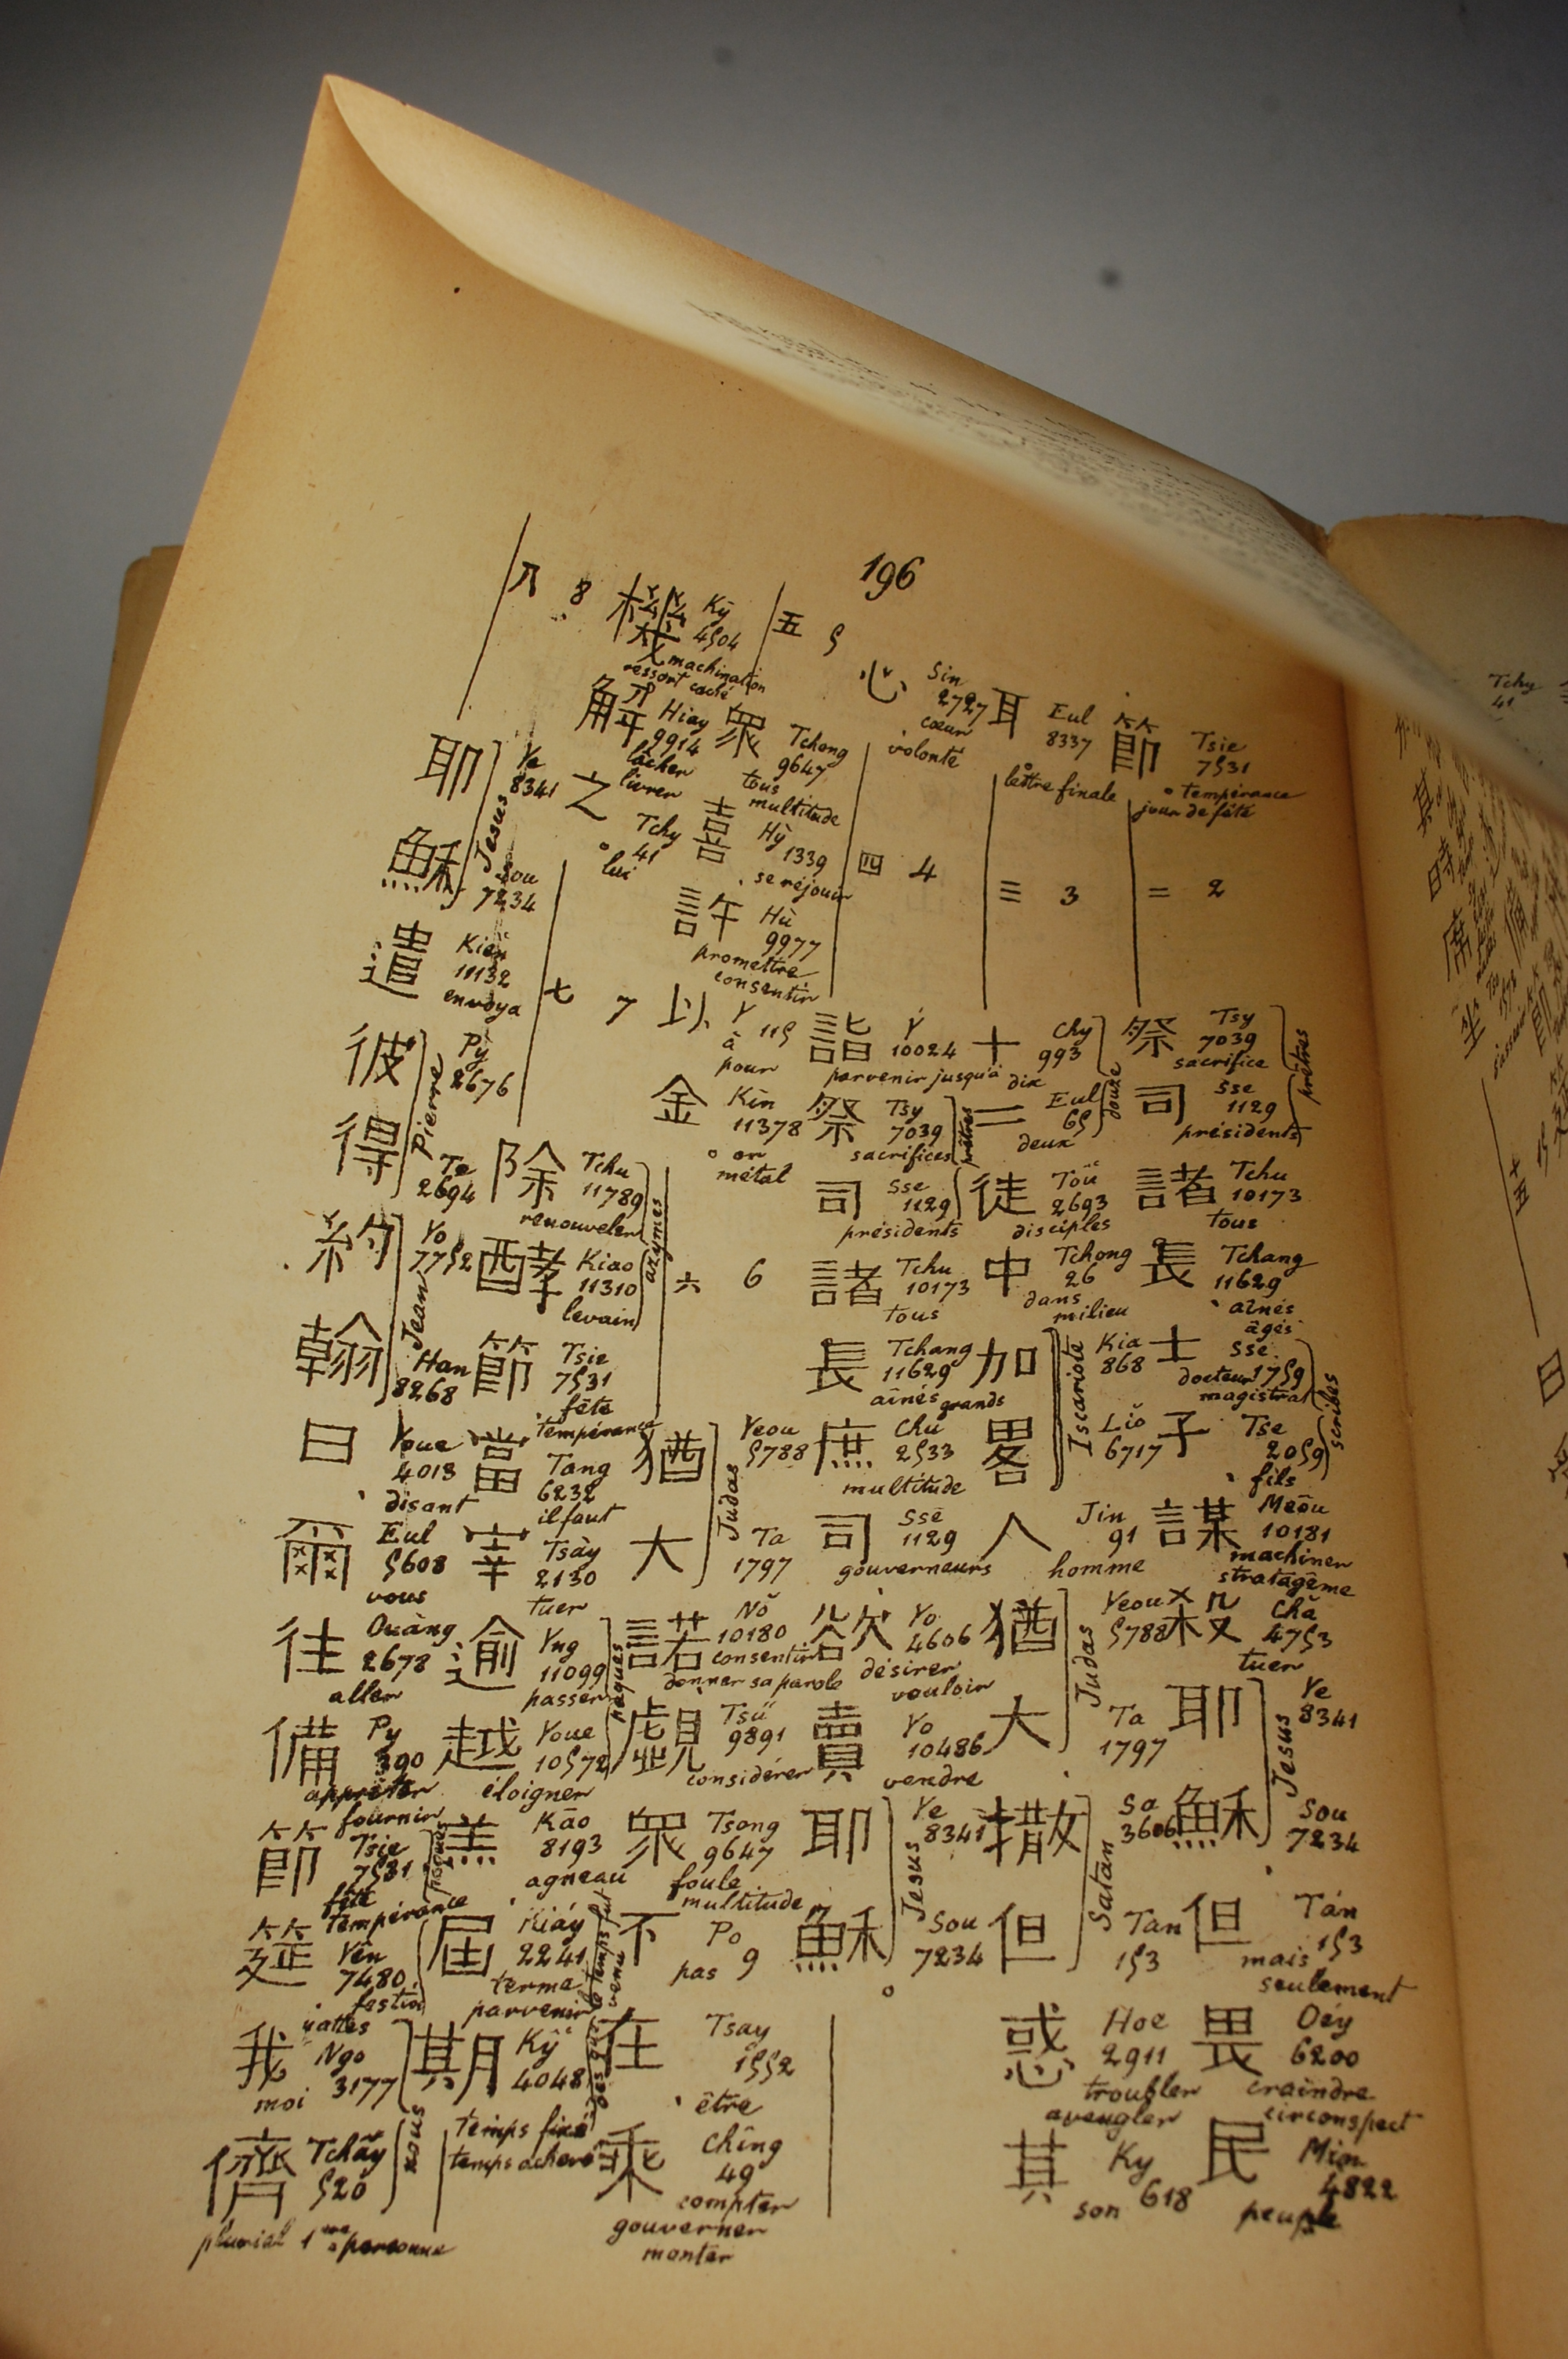 196
節 Tsie
7531
tempérance
jour de fête
二 2
祭 Tsy
7039
sacrifice
司 Sse
1129
présidents
prêtres
諸 Tchu
10173
tous
長 Tchang
11629
aînés
âgés
士 Sse
1759
docteur
magistrat
子 Tse
2059
fils
scribes
謀 Meôu
10181
machiner
stratagème
殺 Chă
4753
tuer
耶 Ye
8341
穌 Sou
7234
Jesus
但 Tán
153
mais
seulement
畏 Oéy
6200
craindre
circonspect
民 Min
4822
peuple
耳 Eul
8337
lettre finale
三 3
十 Chy
993
dix
二 Eul
65
deux
douze
徒 Toû
2693
disciples
中 Tchong
26
dans
milieu
加 Kia
868
畧 Liŏ
6717
Iscariote
人 Jin
91
homme
猶 Yeou
5788
大 Ta
1797
Judas
撒 Sa
3606
但 Tan
153
Satan
惑 Hoe
2911
troubler
aveugler
其 Ky
618
son
五 5
心 Sin
2727
cœur
volonté
四 4
詣 Y
10024
parvenir jusqu'à
祭 Tsy
7039
sacrifices
司 Sse
1129
présidents
prêtres
諸 Tchu
10173
tous
長 Tchang
11629
aînés grands
庶 Chú
2533
multitude
司 Sse
1129
gouverneurs
欲 Yo
4606
désirer
vouloir
賣 Yo
10486
vendre
耶 Ye
8341
穌 Sou
7234
Jesus
八 8
機 Ky
4504
machination
ressort caché
眾 Tchong
9647
tous
multitude
喜 Hỳ
1339
se réjouir
許 Hù
9977
promettre
consentir
以 Y
115
à
pour
金 Kin
11378
or
métal
六 6
猶 Yeou
5788
大 Ta
1797
Judas
諾 Nŏ
10180
consentir
donner sa parole
覷 Tsü
9891
considérer
眾 Tsong
9647
foule
multitude
不 Po
9
pas
在 Tsay
1552
être
乘 Ching
49
compter
gouverner
monter
解 Hiay
9914
lâcher
livrer
之 Tchy
41
lui
七 7
除 Tchu
11789
renouveler
酵 Kiao
11310
levain
azymes
節 Tsie
7531
fête
tempérance
當 Tang
6232
il faut
宰 Tsày
2130
tuer
逾 Yng
11099
passer
越 Youe
10572
éloigner
pâques
羔 Kāo
8193
agneau
屆 Kiáy
2241
terme
parvenir
期 Kÿ
4048
temps fixé
temps achevé
耶 Ye
8341
穌 Sou
7234
Jesus
遣 Kièn
11132
envoya
彼 Pỳ
2676
得 Te
2694
Pierre
約 Yo
7752
翰 Han
8268
Jean
曰 Youe
4013
disant
爾 Eul
5608
vous
往 Ouàng
2678
aller
備 Py
390
apprêter
fournir
節 Tsie
7531
fête
tempérance
筵 Yên
7480
festin
nattes
我 Ngo
3177
moi
儕 Tchây
520
nous
pluriel 1ère personne
Tchy
41
其
時
席
坐
十五